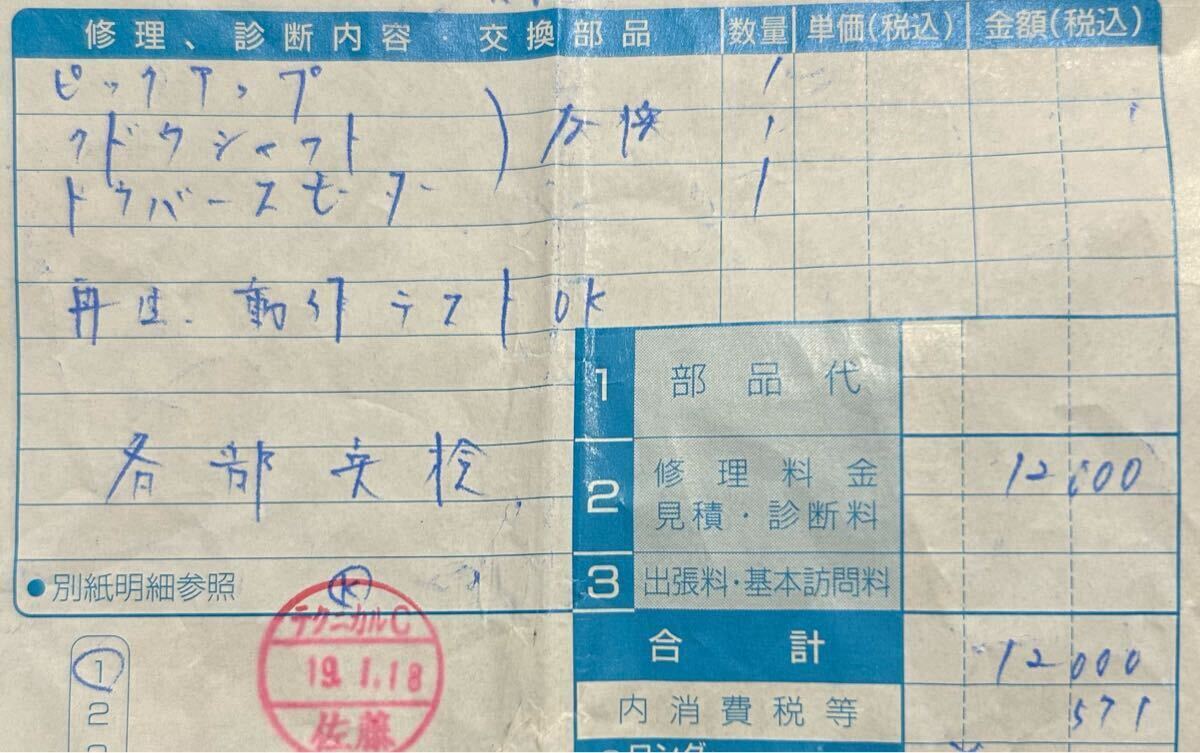 修理、診断内容・交換部品 数量 単価(税込) 金額(税込)
ピックアップ 1
クドウシャフト 交換 1
トラバースモーター 1
再生、動作テスト OK
1 部品代
各部点検
2 修理料金 12,000
見積・診断料
3 出張料・基本訪問料
●別紙明細参照
K
テクニカルC
19.1.18
佐藤
合計 12000
内消費税等 571
1
2